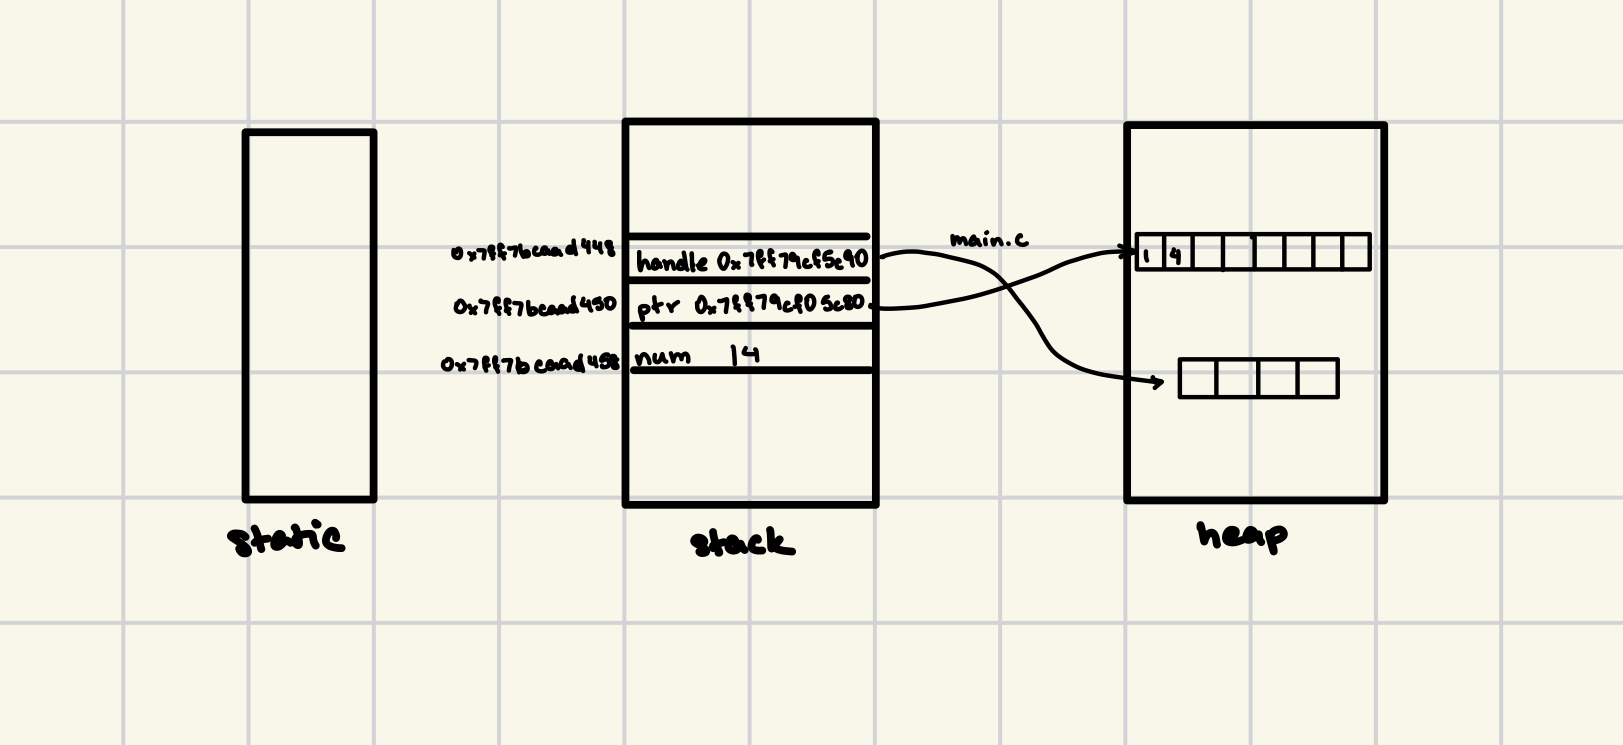 main.c
0x7ff7bcaad448
handle 0x7ff79cf5c90
0x7ff7bcaad450
ptr 0x7ff79cf05c80
0x7ff7bcaad458
num 14
1 4
static
stack
heap